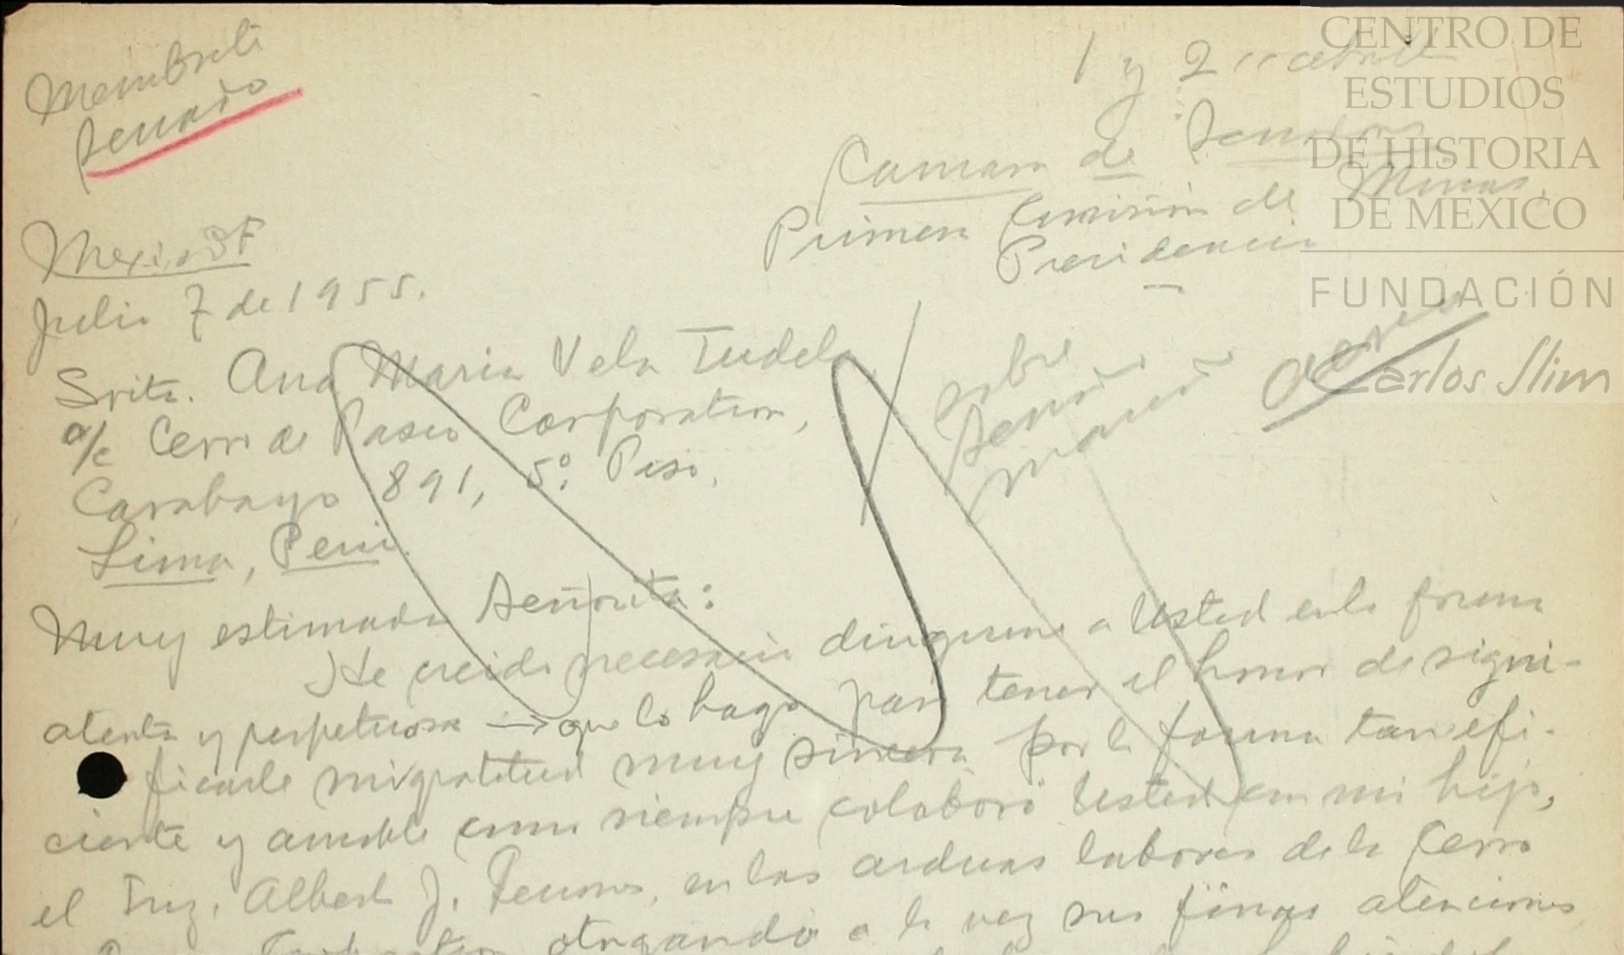 Membrete
Senado
1 y 2
Camara de Senadores
Primera Comisión de Minas.
Presidencia
Mexico DF
Julio 7 de 1955.
Srita. Ana Maria Vela Tudela
a/c Cerro de Pasco Corporation,
Carabaya 891, 5º Piso,
Lima, Perú.
sobre
Muy estimada Señorita:
He creido necesario dirigirme a Usted en la forma
atenta y perpetuosa → que lo hago para tener el honor de signi-
ficarle mi gratitud muy sincera por la forma tan efi-
ciente y amable como siempre colaboró Usted con mi hijo,
el Ing. Alberto J. en las arduas labores de la Cerro
otorgando a la vez sus finas atenciones
CENTRO DE
ESTUDIOS
DE HISTORIA
DE MEXICO
FUNDACIÓN
Carlos Slim